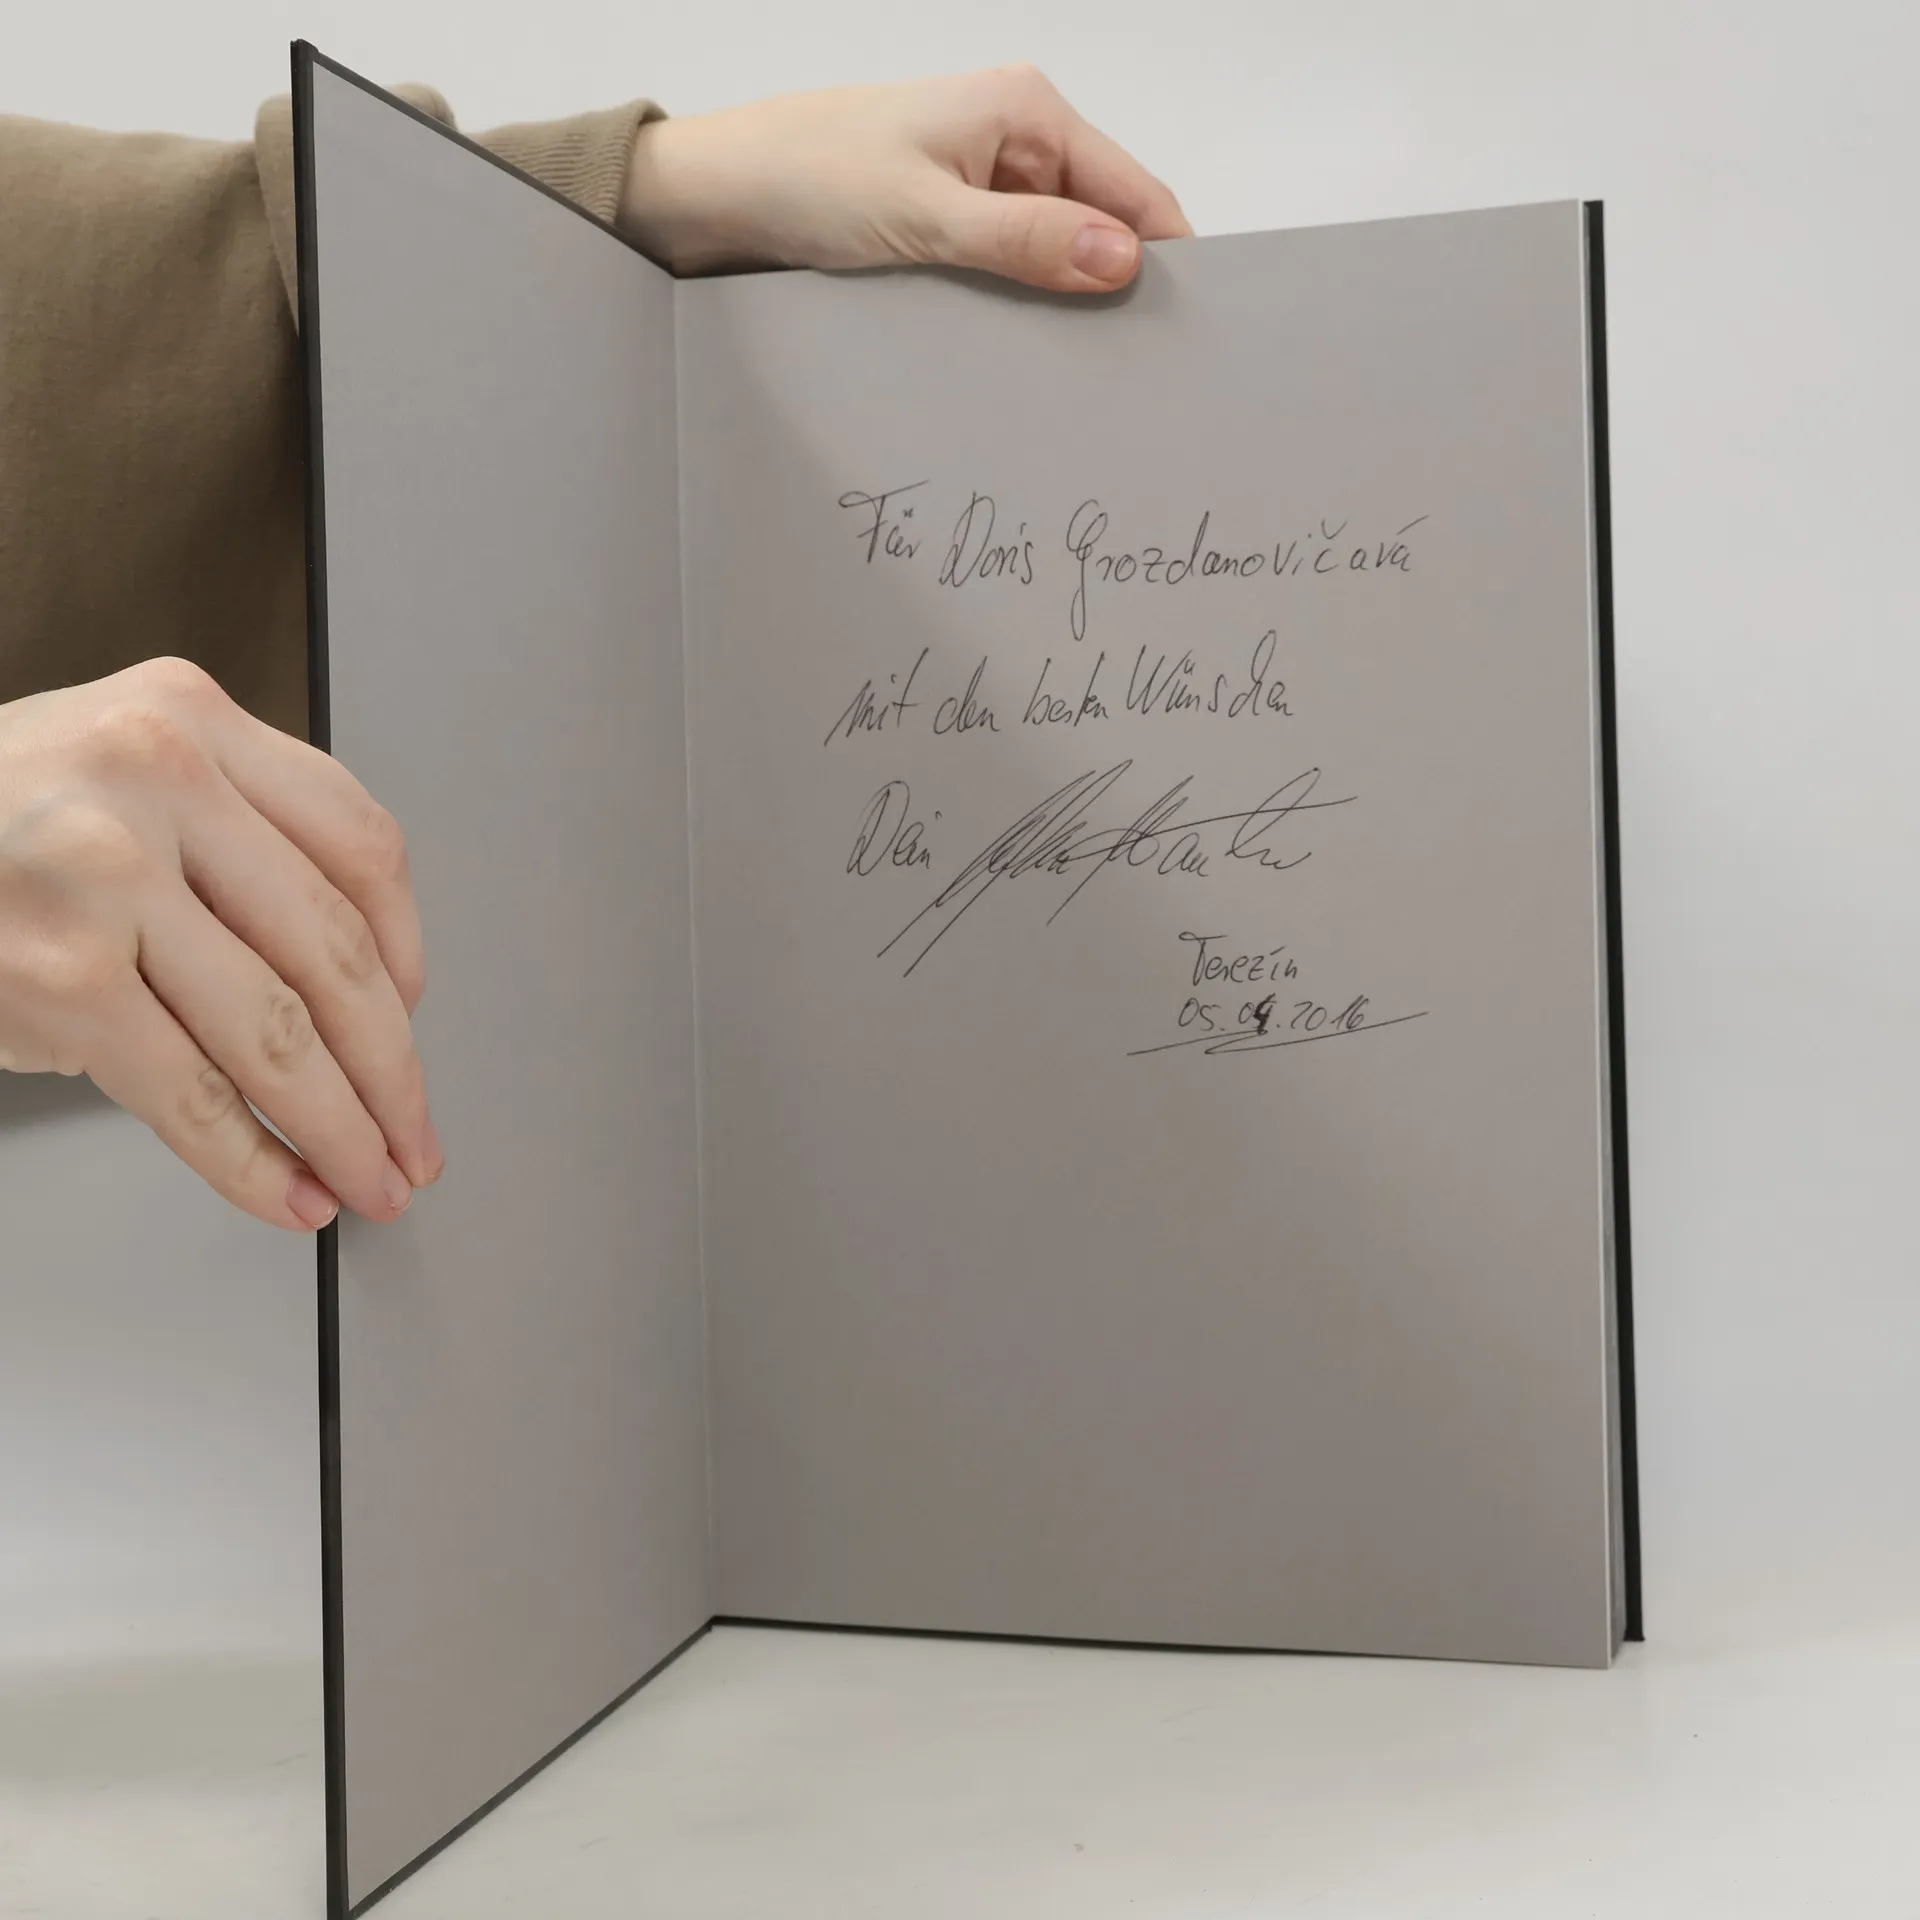 Für Doris Grozdanovičavá
mit den besten Wünschen
Dein
Terezín
05.04.2016